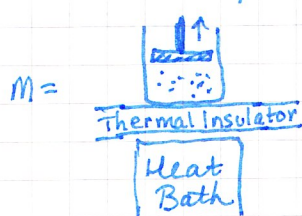 M =
Thermal Insulator
Heat
Bath